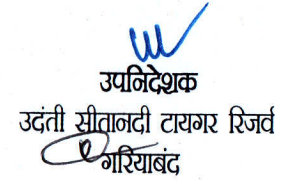 उपनिदेशक
उदंती सीतानदी टायगर रिजर्व
गरियाबंद